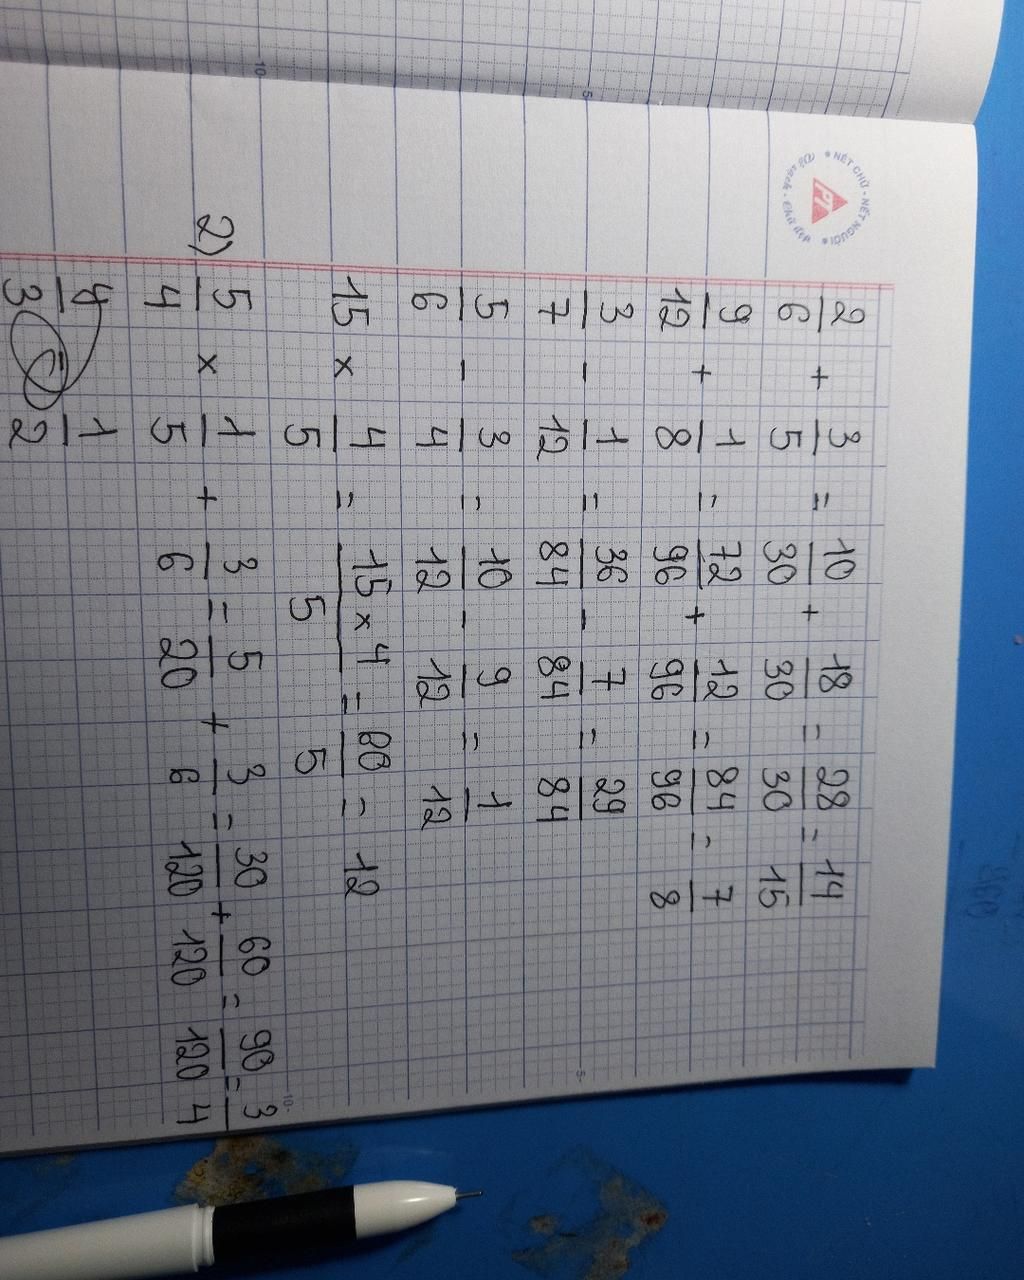 NÉT CHỮ - NẾT NGƯỜI
PT
2/6 + 3/5 = 10/30 + 18/30 = 28/30 = 14/15
9/12 + 1/8 = 72/96 + 12/96 = 84/96 = 7/8
3/7 - 1/12 = 36/84 - 7/84 = 29/84
5/6 - 3/4 = 10/12 - 9/12 = 1/12
15 × 4/5 = 15 × 4/5 = 60/5 = 12
2) 5/4 × 1/5 + 3/6 = 5/20 + 3/6 = 30/120 + 60/120 = 90/120 = 3/4
4/3 - 1/2